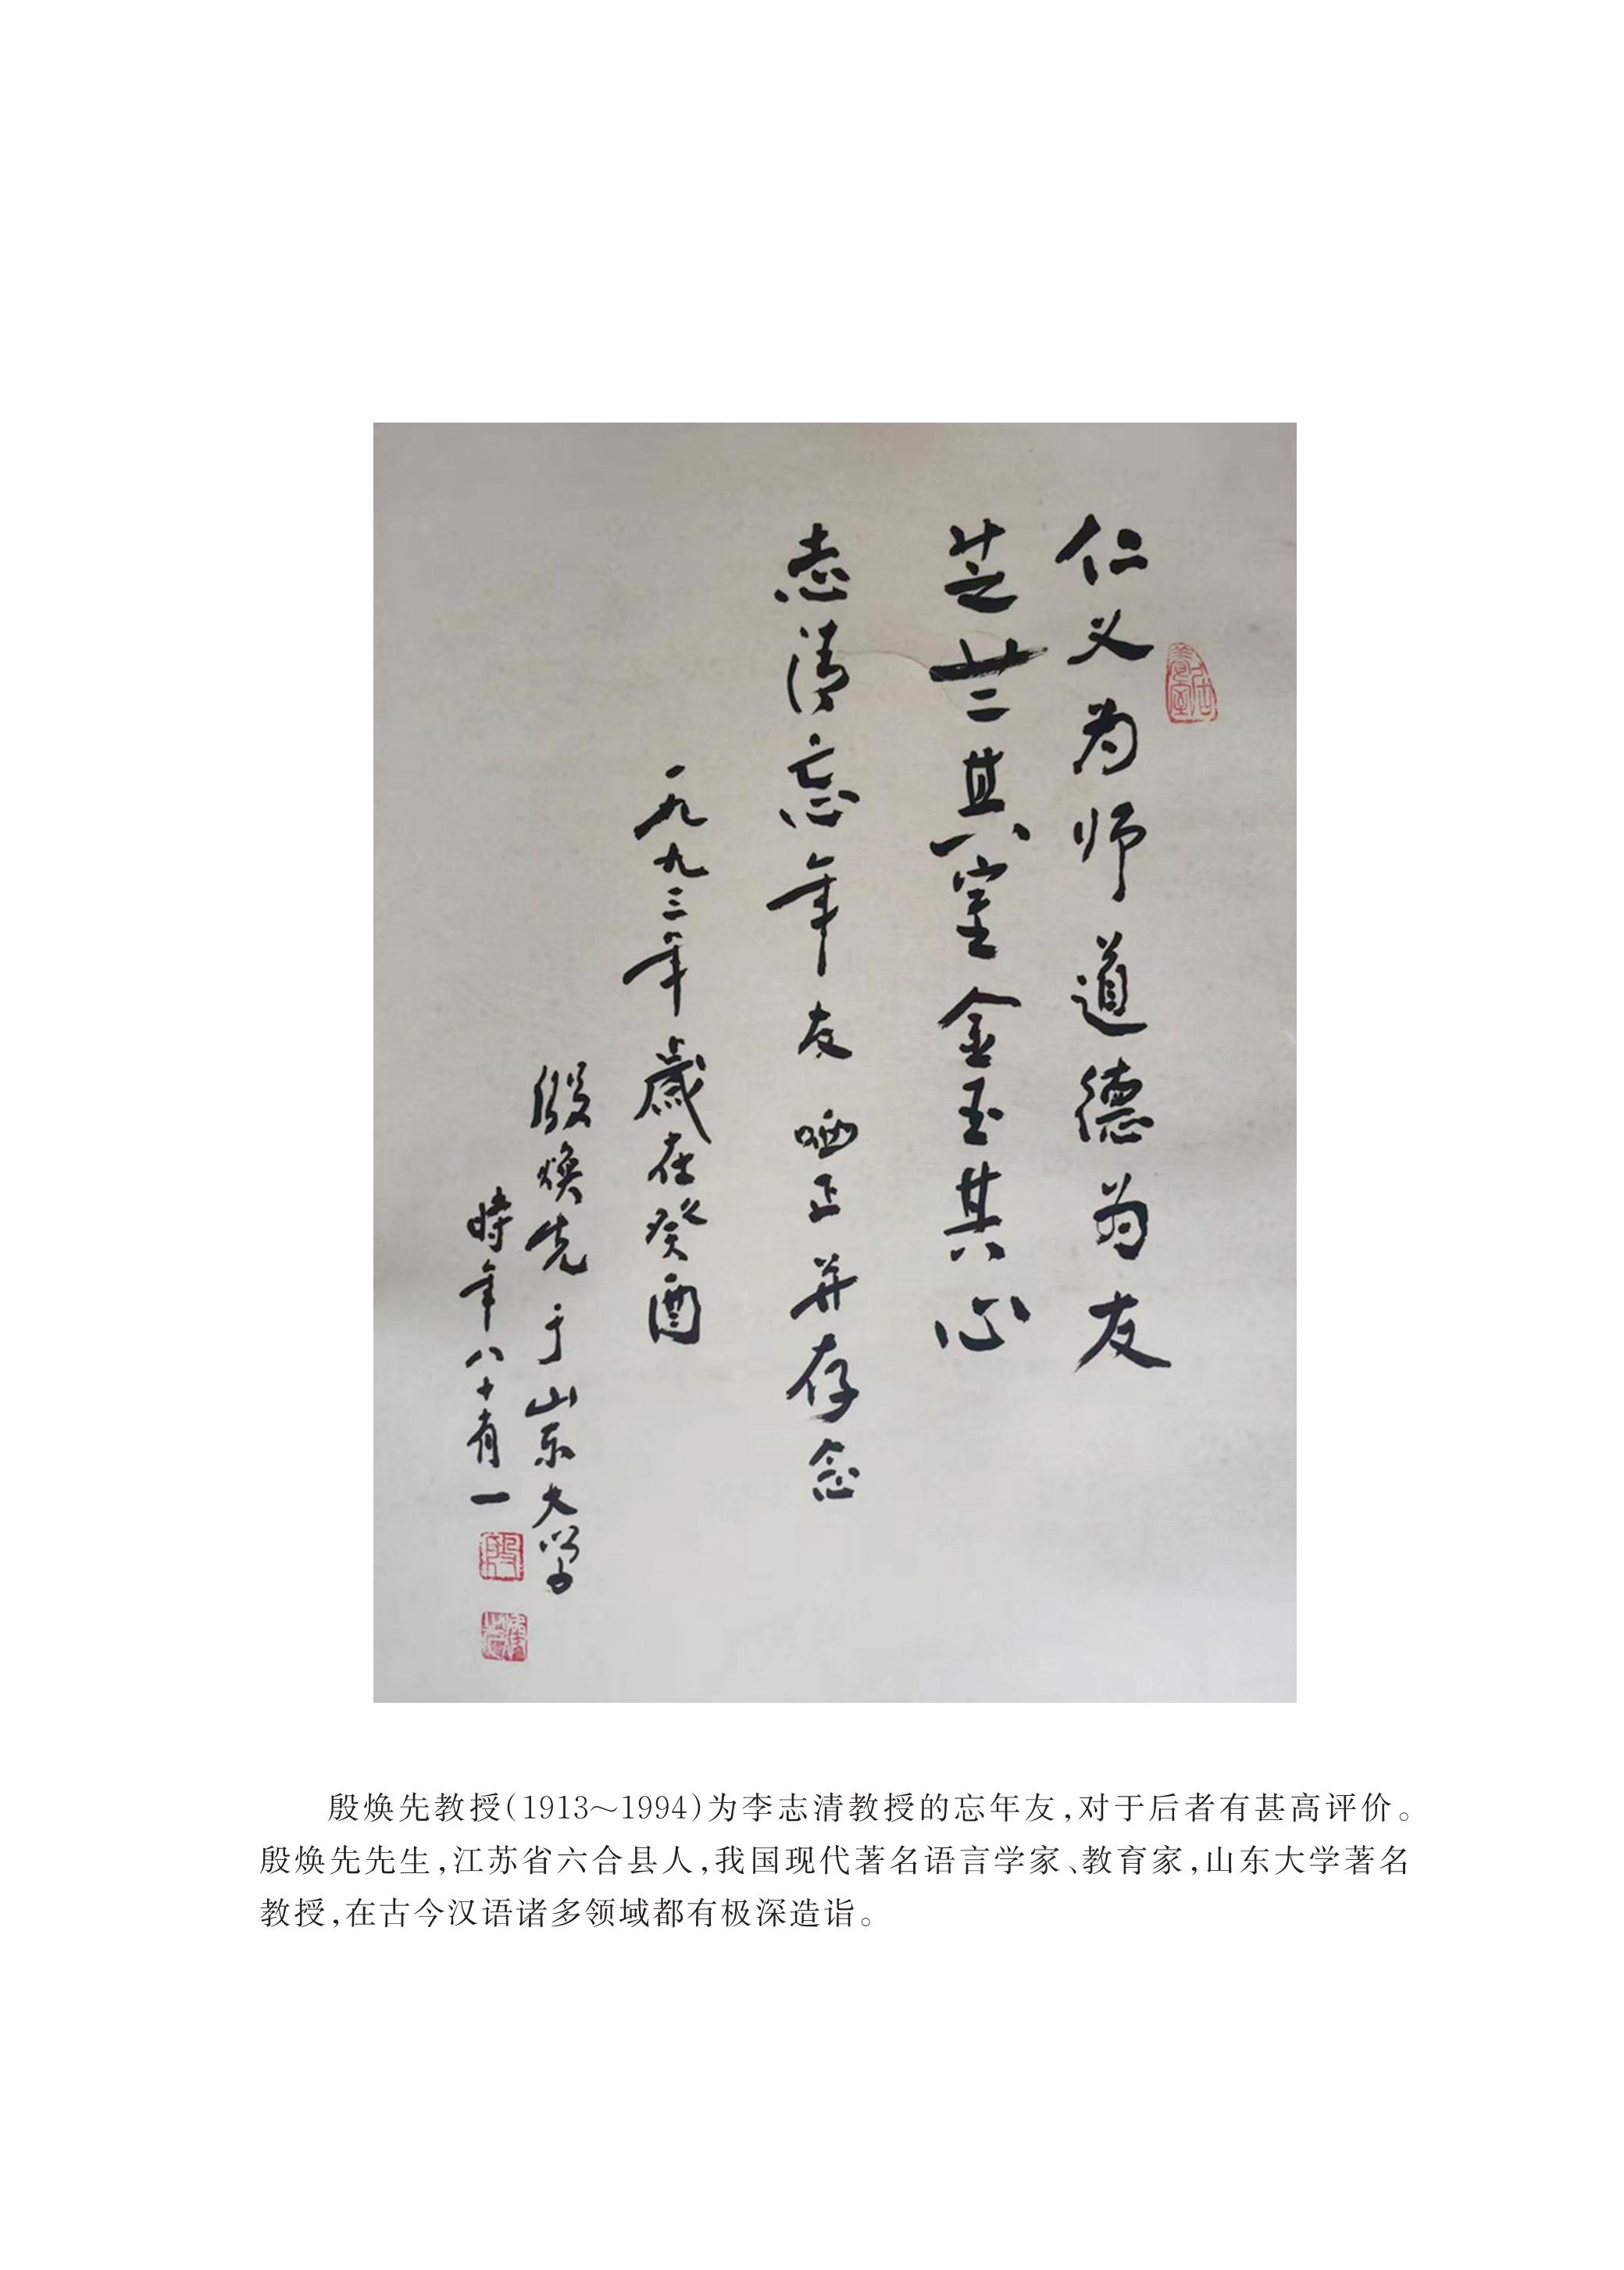 仁义为师道德为友
芝兰其室金玉其心
志清忘年友 哂正并存念
一九九三年歲在癸酉
殷焕先于山东大学
時年八十有一
殷焕先教授(1913～1994)为李志清教授的忘年友,对于后者有甚高评价。
殷焕先先生,江苏省六合县人,我国现代著名语言学家、教育家,山东大学著名
教授,在古今汉语诸多领域都有极深造诣。